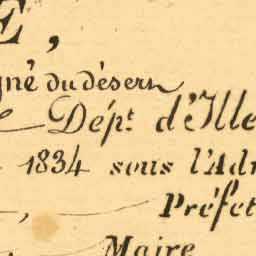 E,
gné du désern
Dépt. d'Ille
1834 sous l'Adr
, Préfet
, Maire